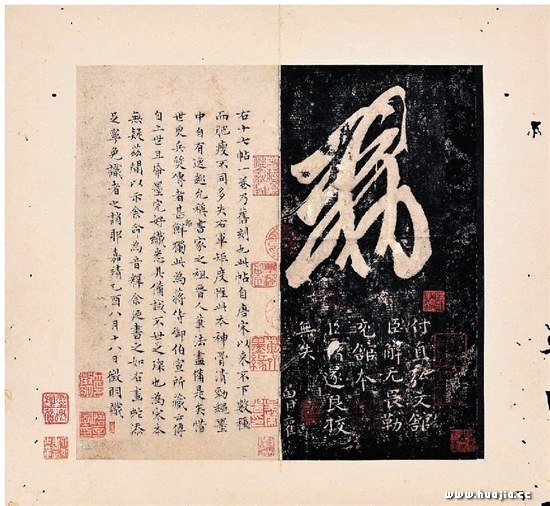 敕
付直弘文館
臣解无畏勒
充館本
臣褚遂良校
無失
僧權
右十七帖一卷乃舊刻也此帖自唐宋以來不下數種
而肥瘦不同多失右軍矩度惟此本神骨清勁繩墨
中自有逸趣允稱書家之祖晉人草法盡備是矣惜
世更兵燹傳者甚鮮獨此為蔣侍御伯宣所藏傳
自上世且帋墨完好識悉具備誠不世之也為宋本
無疑茲閒以示余命為音釋余遂書之如右畫蛇添
足寧免識者之誚耶嘉靖乙酉八月十八日徵明識
www.huajia.cc